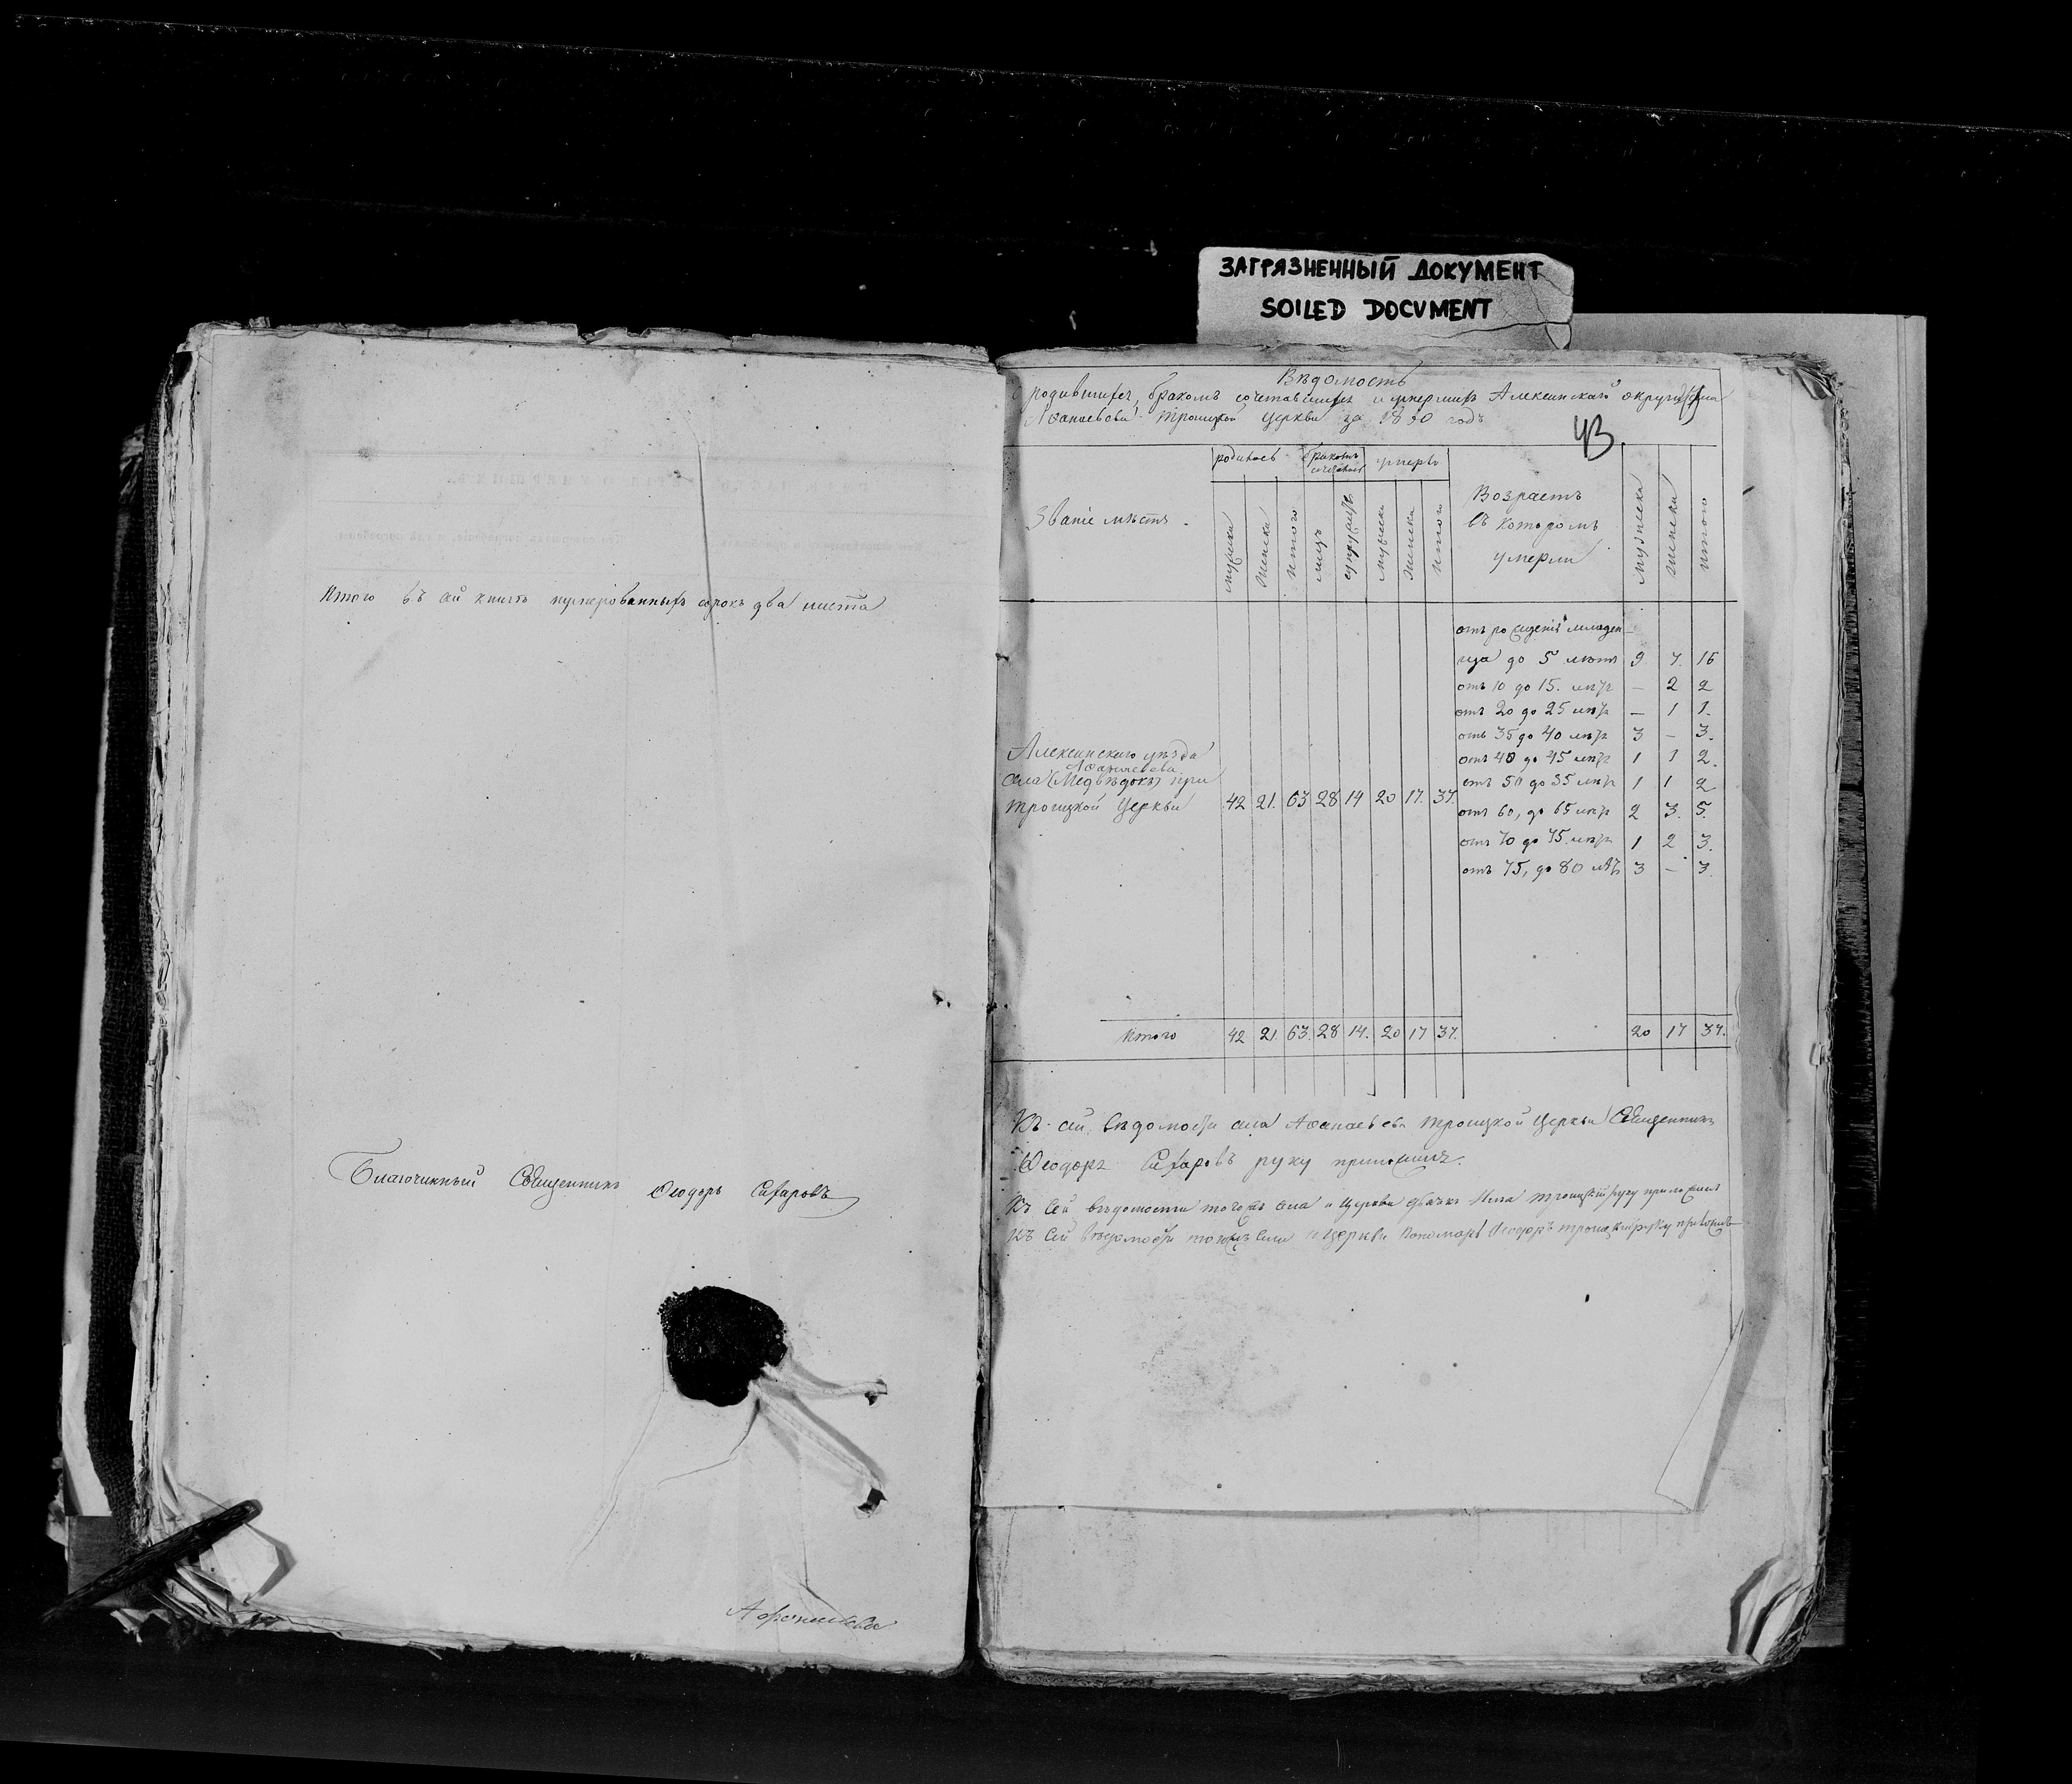 ЗАГРЯЗНЕННЫЙ ДОКУМЕНТ
SOILED DOCUMENT
Итого въ сей книгѣ нумерованныхъ сорокъ два листа
Благочинный Священникъ Ѳеодоръ Сахаровъ
Вѣдомость
родившихся, бракомъ сочетавшихся и умершихъ Алексинскаго округи села
Аѳанасьева Троицкой церкви за 1850 годъ
43.
Званіе мѣстъ.
родилось
бракомъ сочеталось
умерло
мужеска
женска
итого
лицъ
супружествъ
мужеска
женска
итого
Возрастъ
въ которомъ
умерли
мужеска
женска
итого
отъ рожденія младен-
ца до 5 лѣтъ 9 7. 16
отъ 10 до 15. лѣтъ — 2 2
отъ 20 до 25 лѣтъ — 1 1.
отъ 35 до 40 лѣтъ 3 — 3.
отъ 40 до 45 лѣтъ 1 1 2.
отъ 50 до 55 лѣтъ 1 1 2
отъ 60, до 65 лѣтъ 2 3. 5.
отъ 70 до 75. лѣтъ 1 2 3.
отъ 75, до 80 лѣтъ 3 — 3.
Алексинскаго уѣзда
Аѳанасьева
села (Медвѣдокъ) при
Троицкой Церкви 42 21. 63 28 14 20 17. 37.
Итого 42 21. 63. 28 14. 20 17 37. 20 17 37.
Къ сей вѣдомости села Аѳанасьева Троицкой Церкви Священникъ
Ѳеодоръ Сахаровъ руку приложилъ.
Къ сей вѣдомости тогожъ села и Церкви дьячекъ Троицкій руку приложилъ
Къ сей вѣдомости тогожъ села и Церкви пономарь Ѳеодоръ Троицкій руку приложилъ